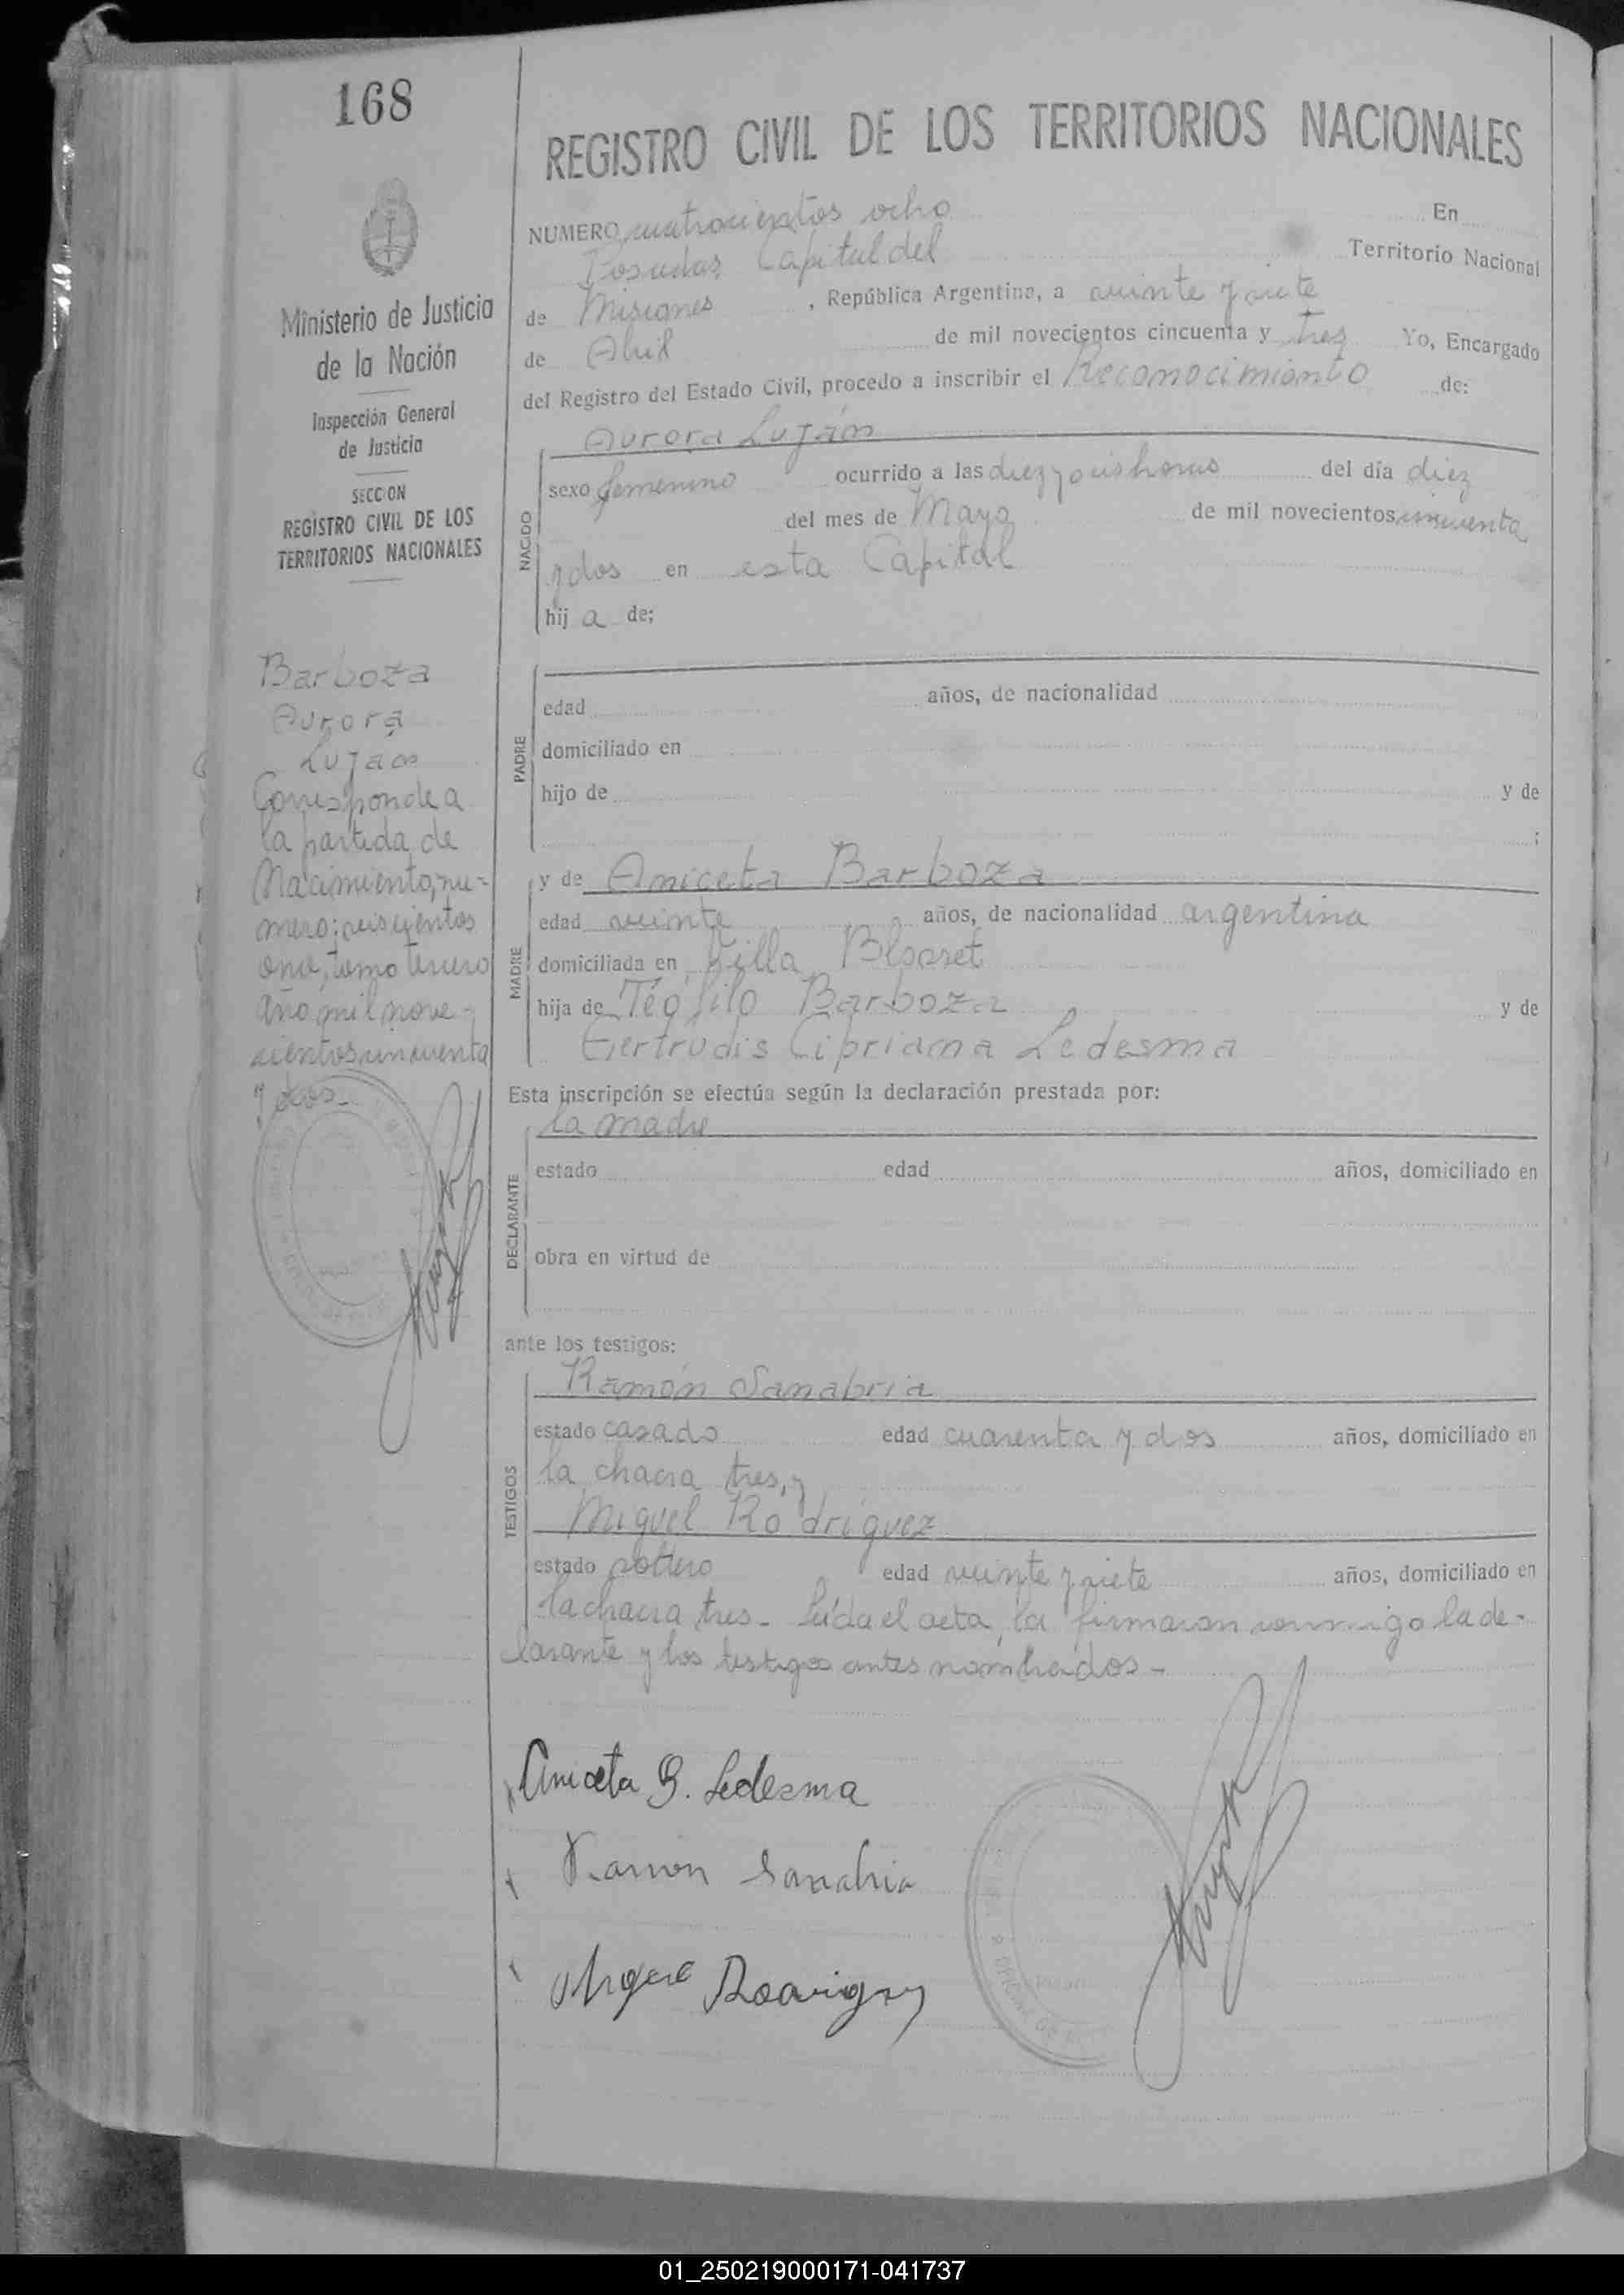 168
REGISTRO CIVIL DE LOS TERRITORIOS NACIONALES
Ministerio de Justicia
de la Nación
Inspección General
de Justicia
SECCION
REGISTRO CIVIL DE LOS
TERRITORIOS NACIONALES
Barboza
Aurora
Luján
Corresponde a
la partida de
Nacimiento, nu-
mero: seiscientos
once, tomo tercero
año mil nove-
cientos cincuenta
y dos.-
NUMERO cuatrocientos ocho En
Posadas Capital del Territorio Nacional
de Misiones , República Argentina, a veinte y siete
de Abril de mil novecientos cincuenta y tres Yo, Encargado
del Registro del Estado Civil, procedo a inscribir el Reconocimiento de:
Aurora Luján
NACIDO
sexo femenino ocurrido a las diez y seis horas del día diez
del mes de Mayo de mil novecientos cincuenta
y dos en esta Capital
hij a de;
PADRE
edad años, de nacionalidad
domiciliado en
hijo de y de
;
MADRE
y de Aniceta Barboza
edad veinte años, de nacionalidad argentina
domiciliada en Villa Blosset
hija de Teófilo Barboza y de
Gertrudis Cipriana Ledesma
Esta inscripción se efectúa según la declaración prestada por:
DECLARANTE
la madre
estado edad años, domiciliado en
obra en virtud de
ante los testigos:
TESTIGOS
Ramón Sanabria
estado casado edad cuarenta y dos años, domiciliado en
la chacra tres, y
Miguel Rodriguez
estado soltero edad veinte y siete años, domiciliado en
la chacra tres.- Leída el acta, la firmaron conmigo la de-
clarante y los testigos antes nombrados.-
Aniceta B. Ledesma
Ramon Sanabria
Miguel Rodriguez
01_250219000171-041737